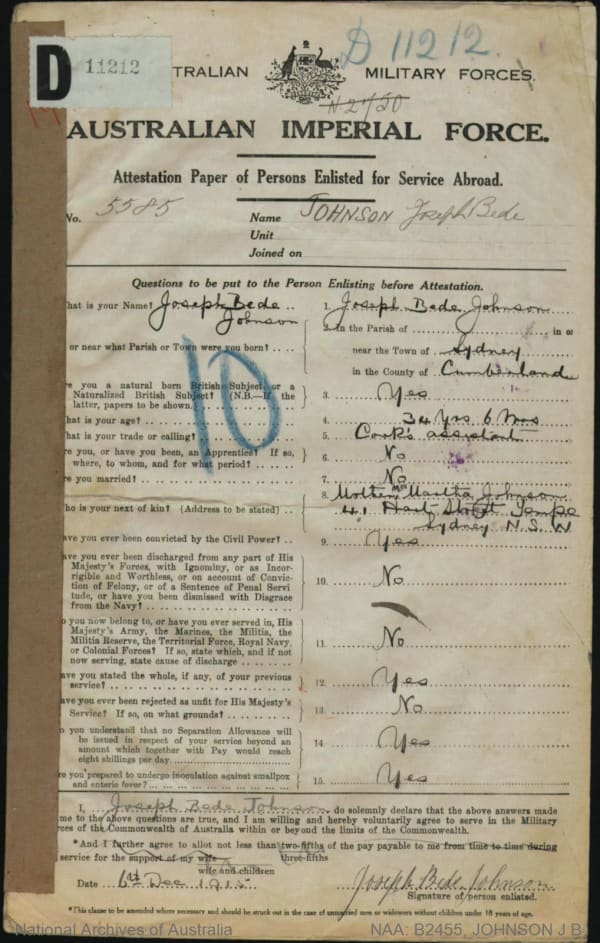 D 11212 D 11212.
TRALIAN MILITARY FORCES.
N 2/50
AUSTRALIAN IMPERIAL FORCE.
Attestation Paper of Persons Enlisted for Service Abroad.
No. 5585 Name JOHNSON Joseph Bede
Unit
Joined on
Questions to be put to the Person Enlisting before Attestation.
hat is your Name? Joseph Bede .. 1. Joseph Bede Johnson
Johnson
2. In the Parish of in or
or near what Parish or Town were you born? near the Town of Sydney
in the County of Cumberland
10
re you a natural born British Subject or a
Naturalized British Subject? (N.B.—If the 3. Yes
latter, papers to be shown.)
hat is your age? 4. 34 Yrs 6 Mos
hat is your trade or calling? 5. Cook's assistant
re you, or have you been, an Apprentice? If so, 6. No
where, to whom, and for what period?
re you married? 7. No
8. Mother Mrs Martha Johnson
ho is your next of kin? (Address to be stated) 41 Hart Street Tempe
Sydney N.S.W
ave you ever been convicted by the Civil Power? 9. Yes
ave you ever been discharged from any part of His
Majesty's Forces, with Ignominy, or as Incor-
rigible and Worthless, or on account of Convic-
tion of Felony, or of a Sentence of Penal Servi 10. No
tude, or have you been dismissed with Disgrace
from the Navy?
o you now belong to, or have you ever served in, His
Majesty's Army, the Marines, the Militia, the
Militia Reserve, the Territorial Force, Royal Navy, 11. No
or Colonial Forces? If so, state which, and if not
now serving, state cause of discharge
ave you stated the whole, if any, of your previous
service? 12. Yes
ave you ever been rejected as unfit for His Majesty's
Service? If so, on what grounds? 13. No
o you understand that no Separation Allowance will
be issued in respect of your service beyond an 14. Yes
amount which together with Pay would reach
eight shillings per day.
re you prepared to undergo inoculation against smallpox
and enteric fever? 15. Yes
I, Joseph Bede Johnson do solemnly declare that the above answers made
me to the above questions are true, and I am willing and hereby voluntarily agree to serve in the Military
rces of the Commonwealth of Australia within or beyond the limits of the Commonwealth.
*And I further agree to allot not less than two-fifths of the pay payable to me from time to time during
service for the support of my wife three-fifths
wife and children
Date 6th Dec 1915 Joseph Bede Johnson.
Signature of person enlisted.
*This clause to be amended where necessary and should be struck out in the case of unmarried men or widowers without children under 18 years of age.
National Archives of Australia NAA: B2455, JOHNSON J B